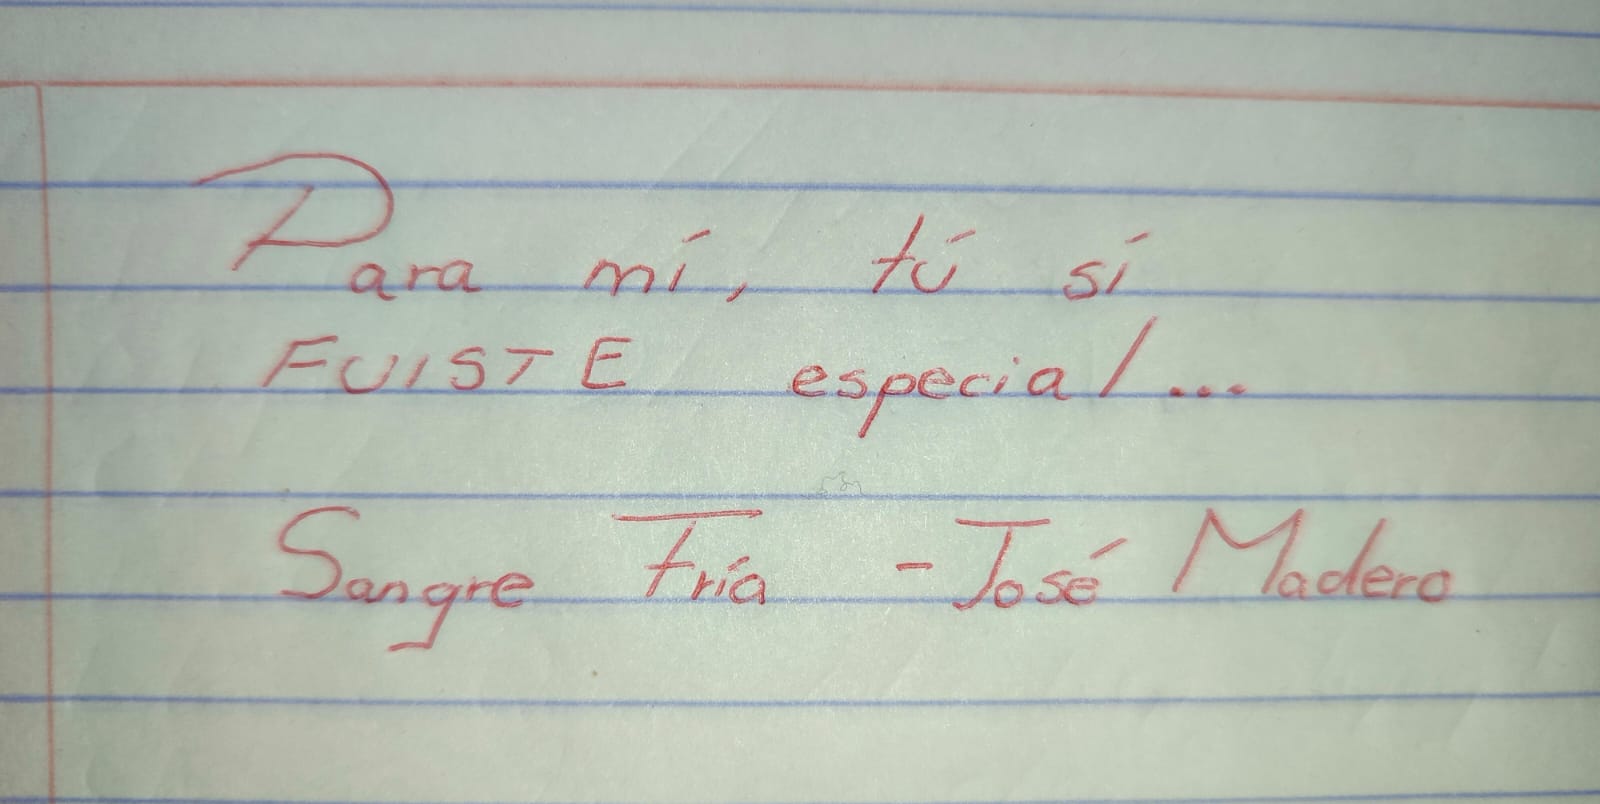 Para mí, tú sí
FUISTE especial...
Sangre Fría - José Madero